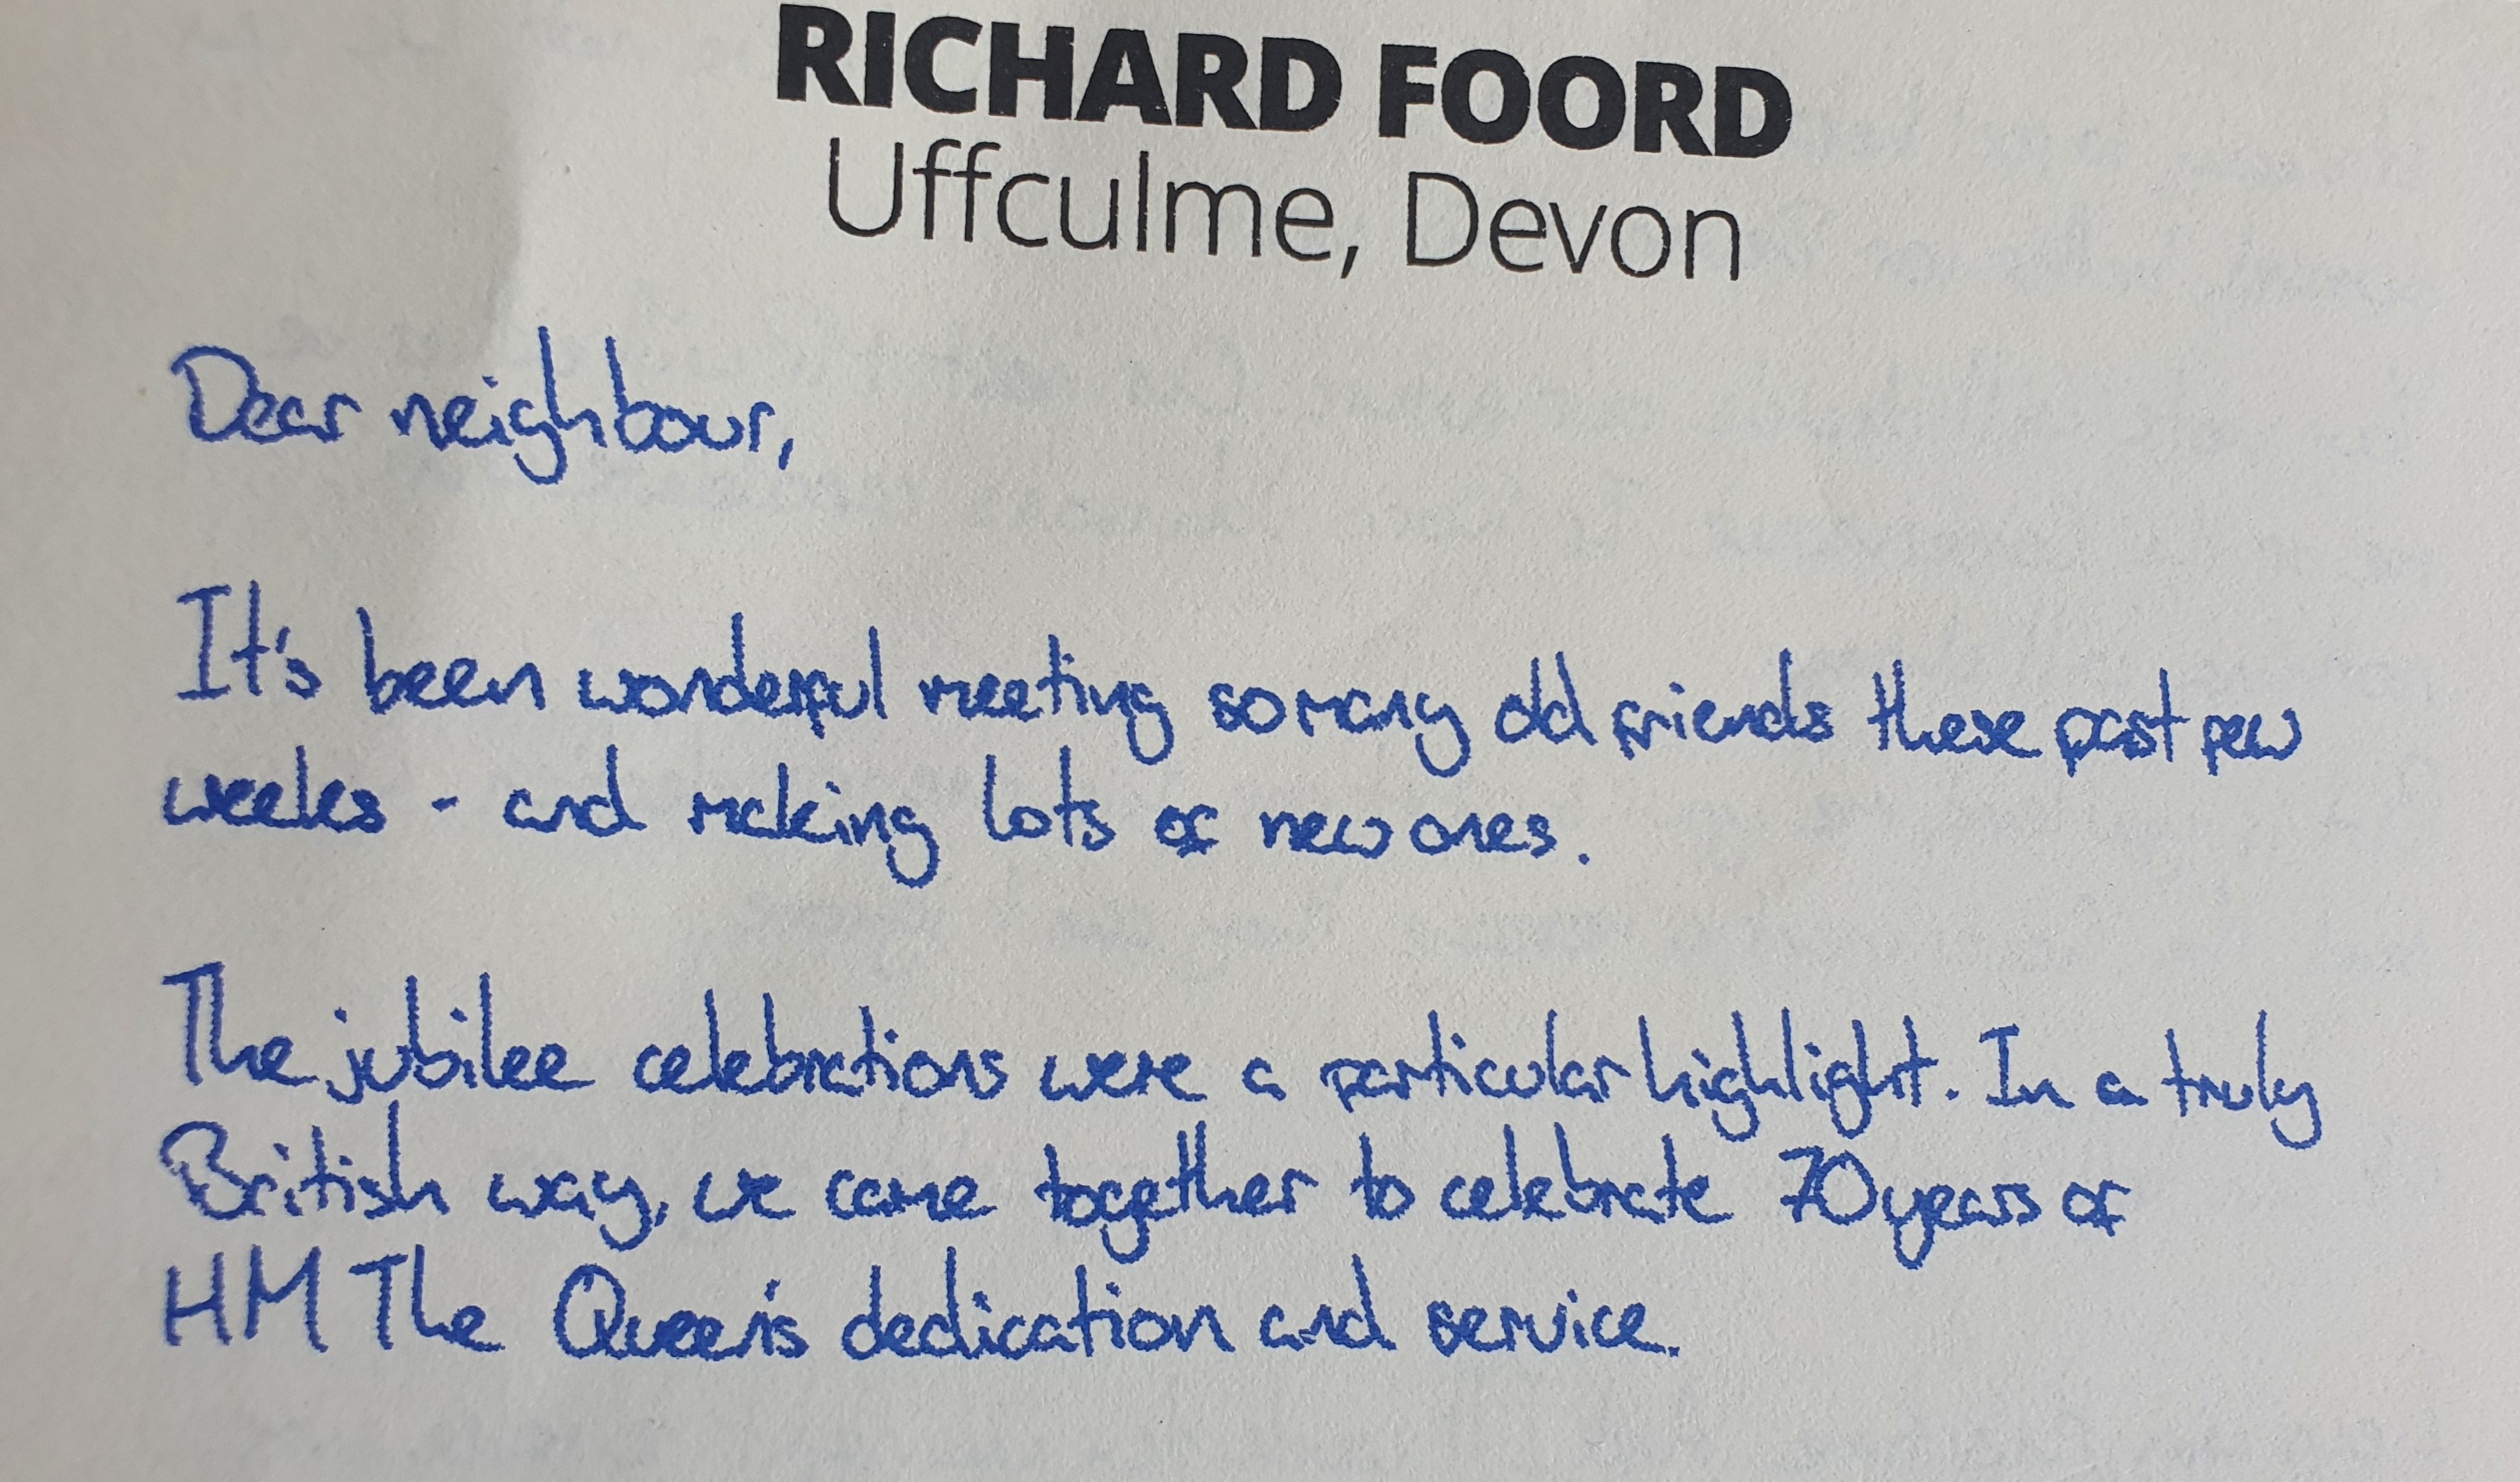 RICHARD FOORD
Uffculme, Devon
Dear neighbour,
It's been wonderful meeting so many old friends these past few
weeks - and making lots of new ones.
The jubilee celebrations were a particular highlight. In a truly
British way, we came together to celebrate 70 years of
HM The Queen's dedication and service.